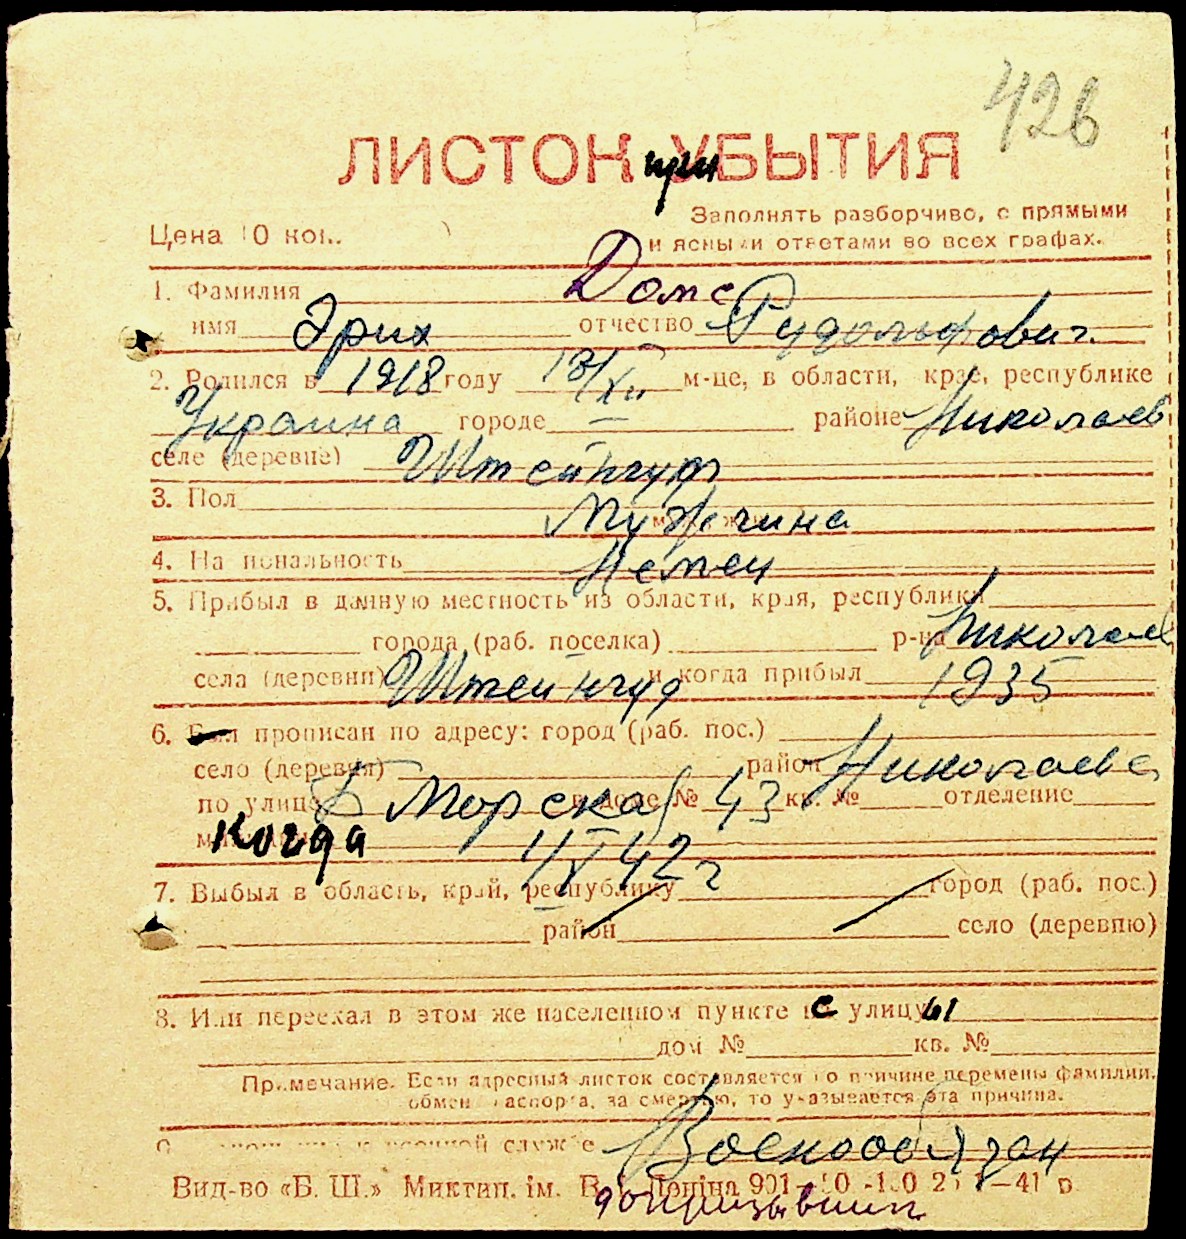 426
ЛИСТОК при УБЫТИЯ
Заполнять разборчиво, с прямыми
Цена 10 коп. и ясными ответами во всех графах.
1. Фамилия Домс
имя Эрих отчество Рудольфович.
2. Родился в 1918 году 13/XII м-це, в области, крае, республике
Украина городе — районе Николаев
селе (деревне) Штейнгут
3. Пол Мужчина
4. Национальность Немец
5. Прибыл в данную местность из области, края, республики
города (раб. поселка) р-на Николаев
села (деревни) Штейнгуд и когда прибыл 1935
6. Был прописан по адресу: город (раб. пос.)
село (деревня) район Николаев
по улице Б Морская в доме № 43 кв. № отделение
когда 4/V 42 г
7. Выбыл в область, край, республику город (раб. пос.)
район село (деревню)
8. Или переехал в этом же населенном пункте с улицы
дом № кв. №
Примечание. Если адресный листок составляется по причине перемены фамилии,
обмен паспорта, за смертью, то указывается эта причина.
военной службе Военнообязан
Вид-во «Б. Ш.» Миктип. ім. В. І. Леніна 901
допризывник